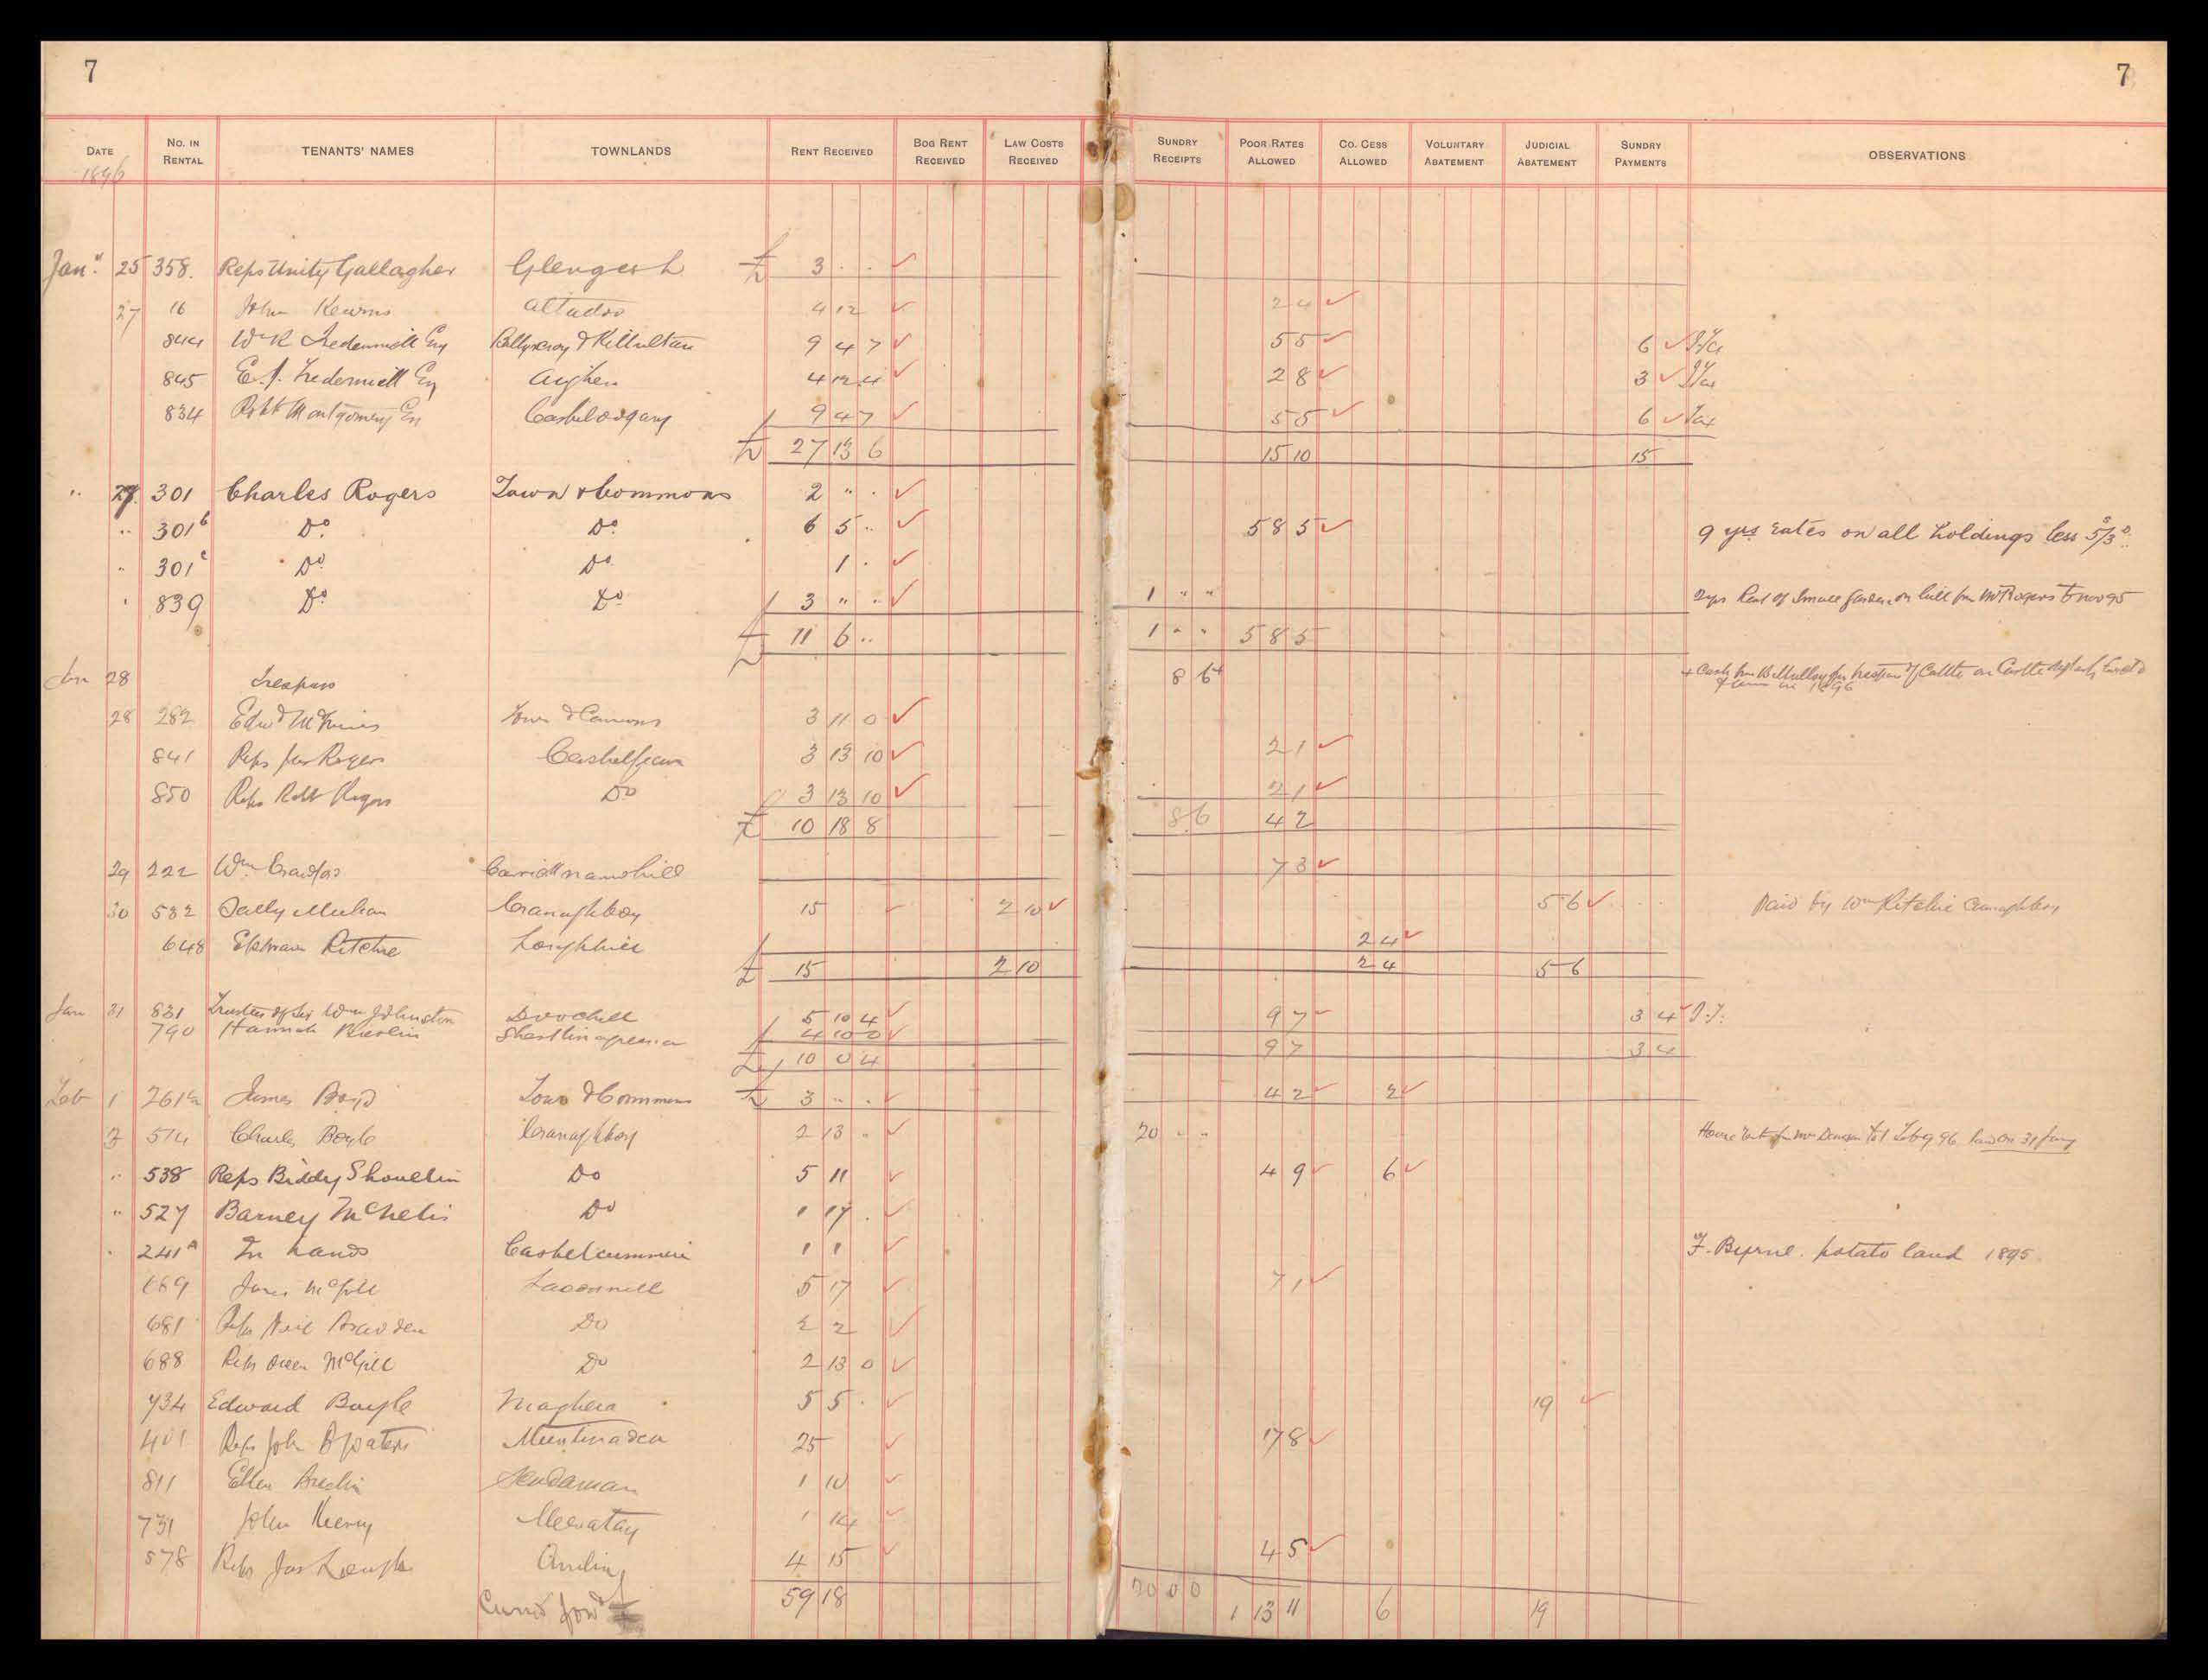 7 7
DATE No. IN RENTAL TENANTS' NAMES TOWNLANDS RENT RECEIVED BOG RENT RECEIVED LAW COSTS RECEIVED SUNDRY RECEIPTS POOR RATES ALLOWED CO. CESS ALLOWED VOLUNTARY ABATEMENT JUDICIAL ABATEMENT SUNDRY PAYMENTS OBSERVATIONS
1896
Jany. 25 358. Reps Unity Gallagher Glengesh £ 3 . .
27 16 John Kearns Altadoo 4 12 2 4
844 Wm R Tredennick Esq 9 4 7 5 5 6
845 E. J. Tredennick Esq Aighen 4 12 4 2 8 3
834 Robt Montgomery Esq 9 4 7 5 5 6 Tax
£ 27 13 6 15 10 15
" 27 301 Charles Rogers Town & Commons 2 " .
" 301b Do. Do. 6 5 .. 5 8 5 9 yrs rates on all holdings less 5s/3d
" 301c Do. Do. 1 .
" 839 Do. Do. 3 " . 1 " " 2 yrs Rent of Small Garden on hill from Mr Rogers to Nov 95
£ 11 6 .. 1 " " 5 8 5
Jan 28 Trespass 8 6 + Cash from for trespass of Cattle on Castle
farm in 1896
28 282 Edwd Town & Commons 3 11 0
841 Reps Jas Rogers 3 13 10 2 1
850 Reps Robt Rogers Do 3 13 10 2 1
£ 10 18 8 8 6 4 2
29 222 Wm Crawford 7 3
30 532 Sally Meehan Cranaghboy 15 2 10 5 6 Paid by Wm Ritchie Cranaghboy
648 Ritchie Loughhill 2 4
£ 15 2 10 2 4 5 6
Jan 31 831 Trustees of Sir Wm Johnston Doochill 5 10 4 9 7 3 4 I.T.
790 Hannah Breslin 4 10 0
£ 10 0 4 9 7 3 4
Feb 1 261a James Boyd Town & Commons £ 3 " . 4 2 2
3 514 Charles Boyle Cranaghboy 2 13 " 20 " " House rent from Mr to 1 Feby 96 paid on 31 Jany
" 538 Reps Biddy Shouelin Do 5 11 4 9 6
" 527 Barney McNelis Do 1 17 .
" 241A In hands Cashelcummin 1 1 F. Byrne. potato land 1895
689 James McGill Laconnell 5 17 7 1
681 Reps Neil Do 2 2
688 Reps Owen McGill Do 2 13 0
734 Edward Boyle Maghera 5 5 . 19
401 Reps John Mullinadea 25 17 8
811 Ellen Breslin 1 10
731 John Meenatay 1 14
578 Reps Jas 4 15 4 5
Carrd Forwd £ 59 18 20 0 0 1 13 11 6 19